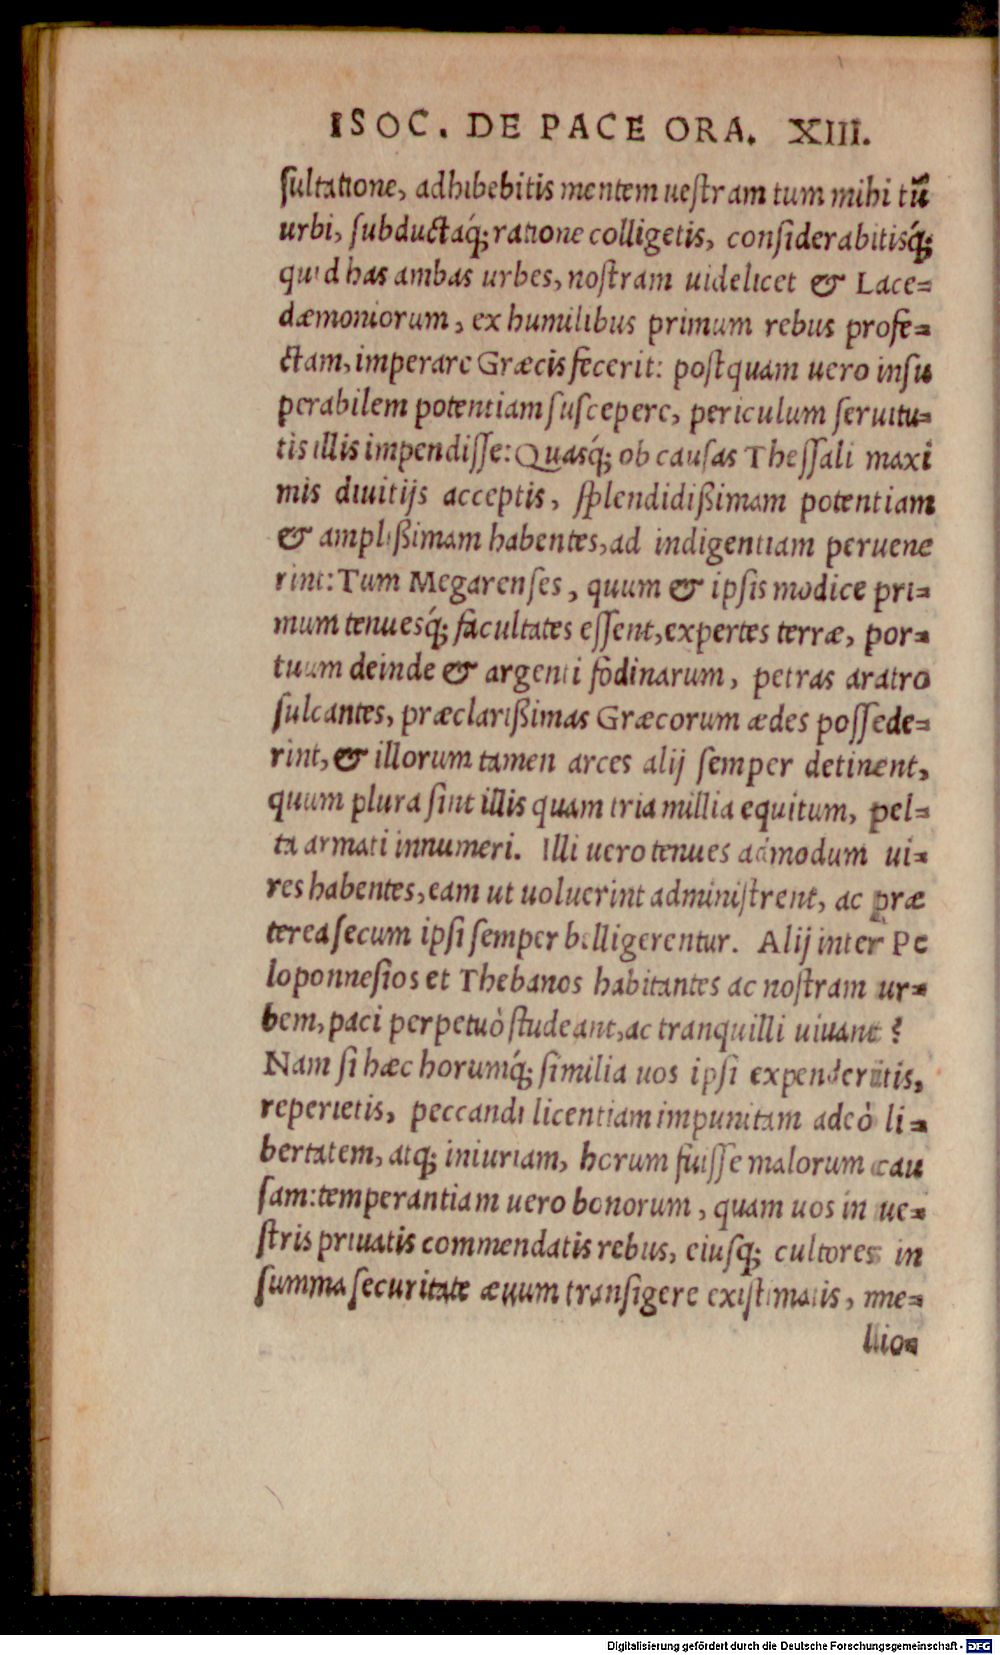 ISOC. DE PACE ORA. XIII.
ſultatione, adhibebitis mentem ueſtram tum mihi tū
urbi, ſubductaq́; ratione colligetis, conſiderabitisq́;
quid has ambas urbes, noſtram uidelicet & Lace=
dæmoniorum, ex humilibus primum rebus profe=
ctam, imperare Græcis fecerit: poſtquam uero inſu
perabilem potentiam ſuſcepere, periculum ſeruitu=
tis illis impendiſſe: Quasq́; ob cauſas Theſſali maxi
mis diuitijs acceptis, ſplendidißimam potentiam
& amplißimam habentes, ad indigentiam peruene
rint: Tum Megarenſes, quum & ipſis modice pri=
mum tenuesq́; facultates eſſent, expertes terræ, por=
tuum deinde & argenti fodinarum, petras aratro
ſulcantes, præclarißimas Græcorum ædes poſſede=
rint, & illorum tamen arces alij ſemper detinent,
quum plura ſint illis quam tria millia equitum, pel=
ta armati innumeri. Illi uero tenues admodum ui=
res habentes, eam ut uoluerint adminiſtrent, ac præ
terea ſecum ipſi ſemper belligerentur. Alij inter Pe
loponneſios et Thebanos habitantes ac noſtram ur=
bem, paci perpetuò ſtudeant, ac tranquilli uiuant?
Nam ſi hæc horumq́; ſimilia uos ipſi expenderitis,
reperietis, peccandi licentiam impunitam adeò li=
bertatem, atq; iniuriam, horum fuiſſe malorum cau
ſam: temperantiam uero bonorum, quam uos in ue=
ſtris priuatis commendatis rebus, eiusq; cultores in
ſumma ſecuritate æuum tranſigere exiſtimatis, me=
lio=
Digitalisierung gefördert durch die Deutsche Forschungsgemeinschaft - DFG